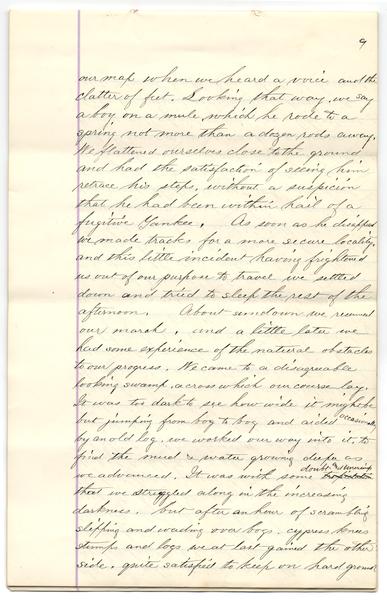 9
our map when we heard a voice and the
clatter of feet. Looking that way, we say
a boy on a mule, which he rode to a
spring not more than a dozen rods away.
We flattened ourselves close to the ground
and had the satisfaction of seeing him
retrace his steps, without a suspicion
that he had been within hail of a
fugitive Yankee. As soon as he disappd
we made tracks for a more secure locality,
and this little incident having frightened
us out of our purpose to travel we settled
down and tried to sleep the rest of the
afternoon. About sundown we resumed
our march, and a little later we
had some experience of the natural obstacles
to our progress. We came to a disagreeable
looking swamp, across which our course lay.
It was too dark to see how wide it might be
but jumping from bog to bog and aided occasionally
by an old log, we worked our way into it, to
find the mud & water growing deeper as
we advanced. It was with some doubt &
that we struggled along in the increasing
darkness, but after an hour of scrambling
slipping and wading over bogs, cypress knees
stumps and logs we at last gained the other
side, quite satisfied to keep on hard ground